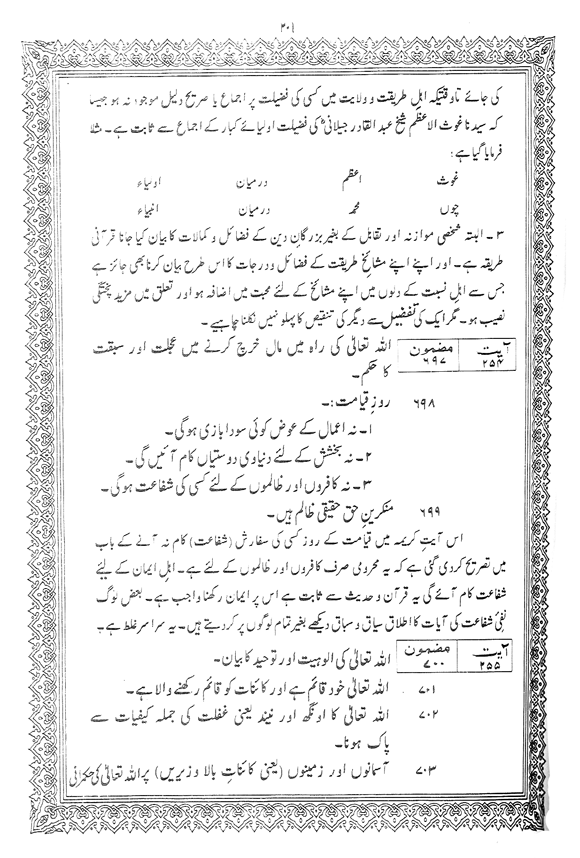 ۳۰۱
کی جائے تاوقتیکہ اہلِ طریقت و ولایت میں کسی کی فضیلت پر اجماع یا صریح دلیل موجود نہ ہو جیسا
کہ سیدنا غوث الاعظم شیخ عبد القادر جیلانیؓ کی فضیلت اولیائے کبار کے اجماع سے ثابت ہے۔ مثلا
فرمایا گیا ہے:
غوث اعظم درمیان اولیاء
چوں محمد درمیان انبیاء
۳۔ البتہ شخصی موازنہ اور تقابل کے بغیر بزرگانِ دین کے فضائل و کمالات کا بیان کیا جانا قرآنی
طریقہ ہے۔ اور اپنے اپنے مشائخ طریقت کے فضائل و درجات کا اس طرح بیان کرنا بھی جائز ہے
جس سے اہلِ نسبت کے دلوں میں اپنے مشائخ کے لئے محبت میں اضافہ ہو اور تعلق میں مزید پختگی
نصیب ہو۔ مگر ایک کی تفضیل سے دیگر کی تنقیص کا پہلو نہیں نکلنا چاہیے۔
آیت ۲۵۴ مضمون ۶۹۷ اللہ تعالیٰ کی راہ میں مال خرچ کرنے میں عجلت اور سبقت
کا حکم۔
۶۹۸ روزِ قیامت:۔
۱۔ نہ اعمال کے عوض کوئی سودا بازی ہوگی۔
۲۔ نہ بخشش کے لئے دنیاوی دوستیاں کام آئیں گی۔
۳۔ نہ کافروں اور ظالموں کے لئے کسی کی شفاعت ہوگی۔
۶۹۹ منکرینِ حق حقیقی ظالم ہیں۔
اس آیتِ کریمہ میں قیامت کے روز کسی کی سفارش (شفاعت) کام نہ آنے کے باب
میں تصریح کر دی گئی ہے کہ یہ محرومی صرف کافروں اور ظالموں کے لئے ہے۔ اہلِ ایمان کے لیئے
شفاعت کام آئے گی یہ قرآن و حدیث سے ثابت ہے اس پر ایمان رکھنا واجب ہے۔ بعض لوگ
نفئ شفاعت کی آیات کا اطلاق سیاق و سباق دیکھے بغیر تمام لوگوں پر کر دیتے ہیں۔ یہ سراسر غلط ہے۔
آیت ۲۵۵ مضمون ۷۰۰ اللہ تعالیٰ کی الوہیت اور توحید کا بیان۔
۷۰۱ اللہ تعالیٰ خود قائم ہے اور کائنات کو قائم رکھنے والا ہے۔
۷۰۲ اللہ تعالیٰ کا اونگھ اور نیند یعنی غفلت کی جملہ کیفیات سے
پاک ہونا۔
۷۰۳ آسمانوں اور زمینوں (یعنی کائناتِ بالا و زیریں) پر اللہ تعالیٰ کی حکمرانی